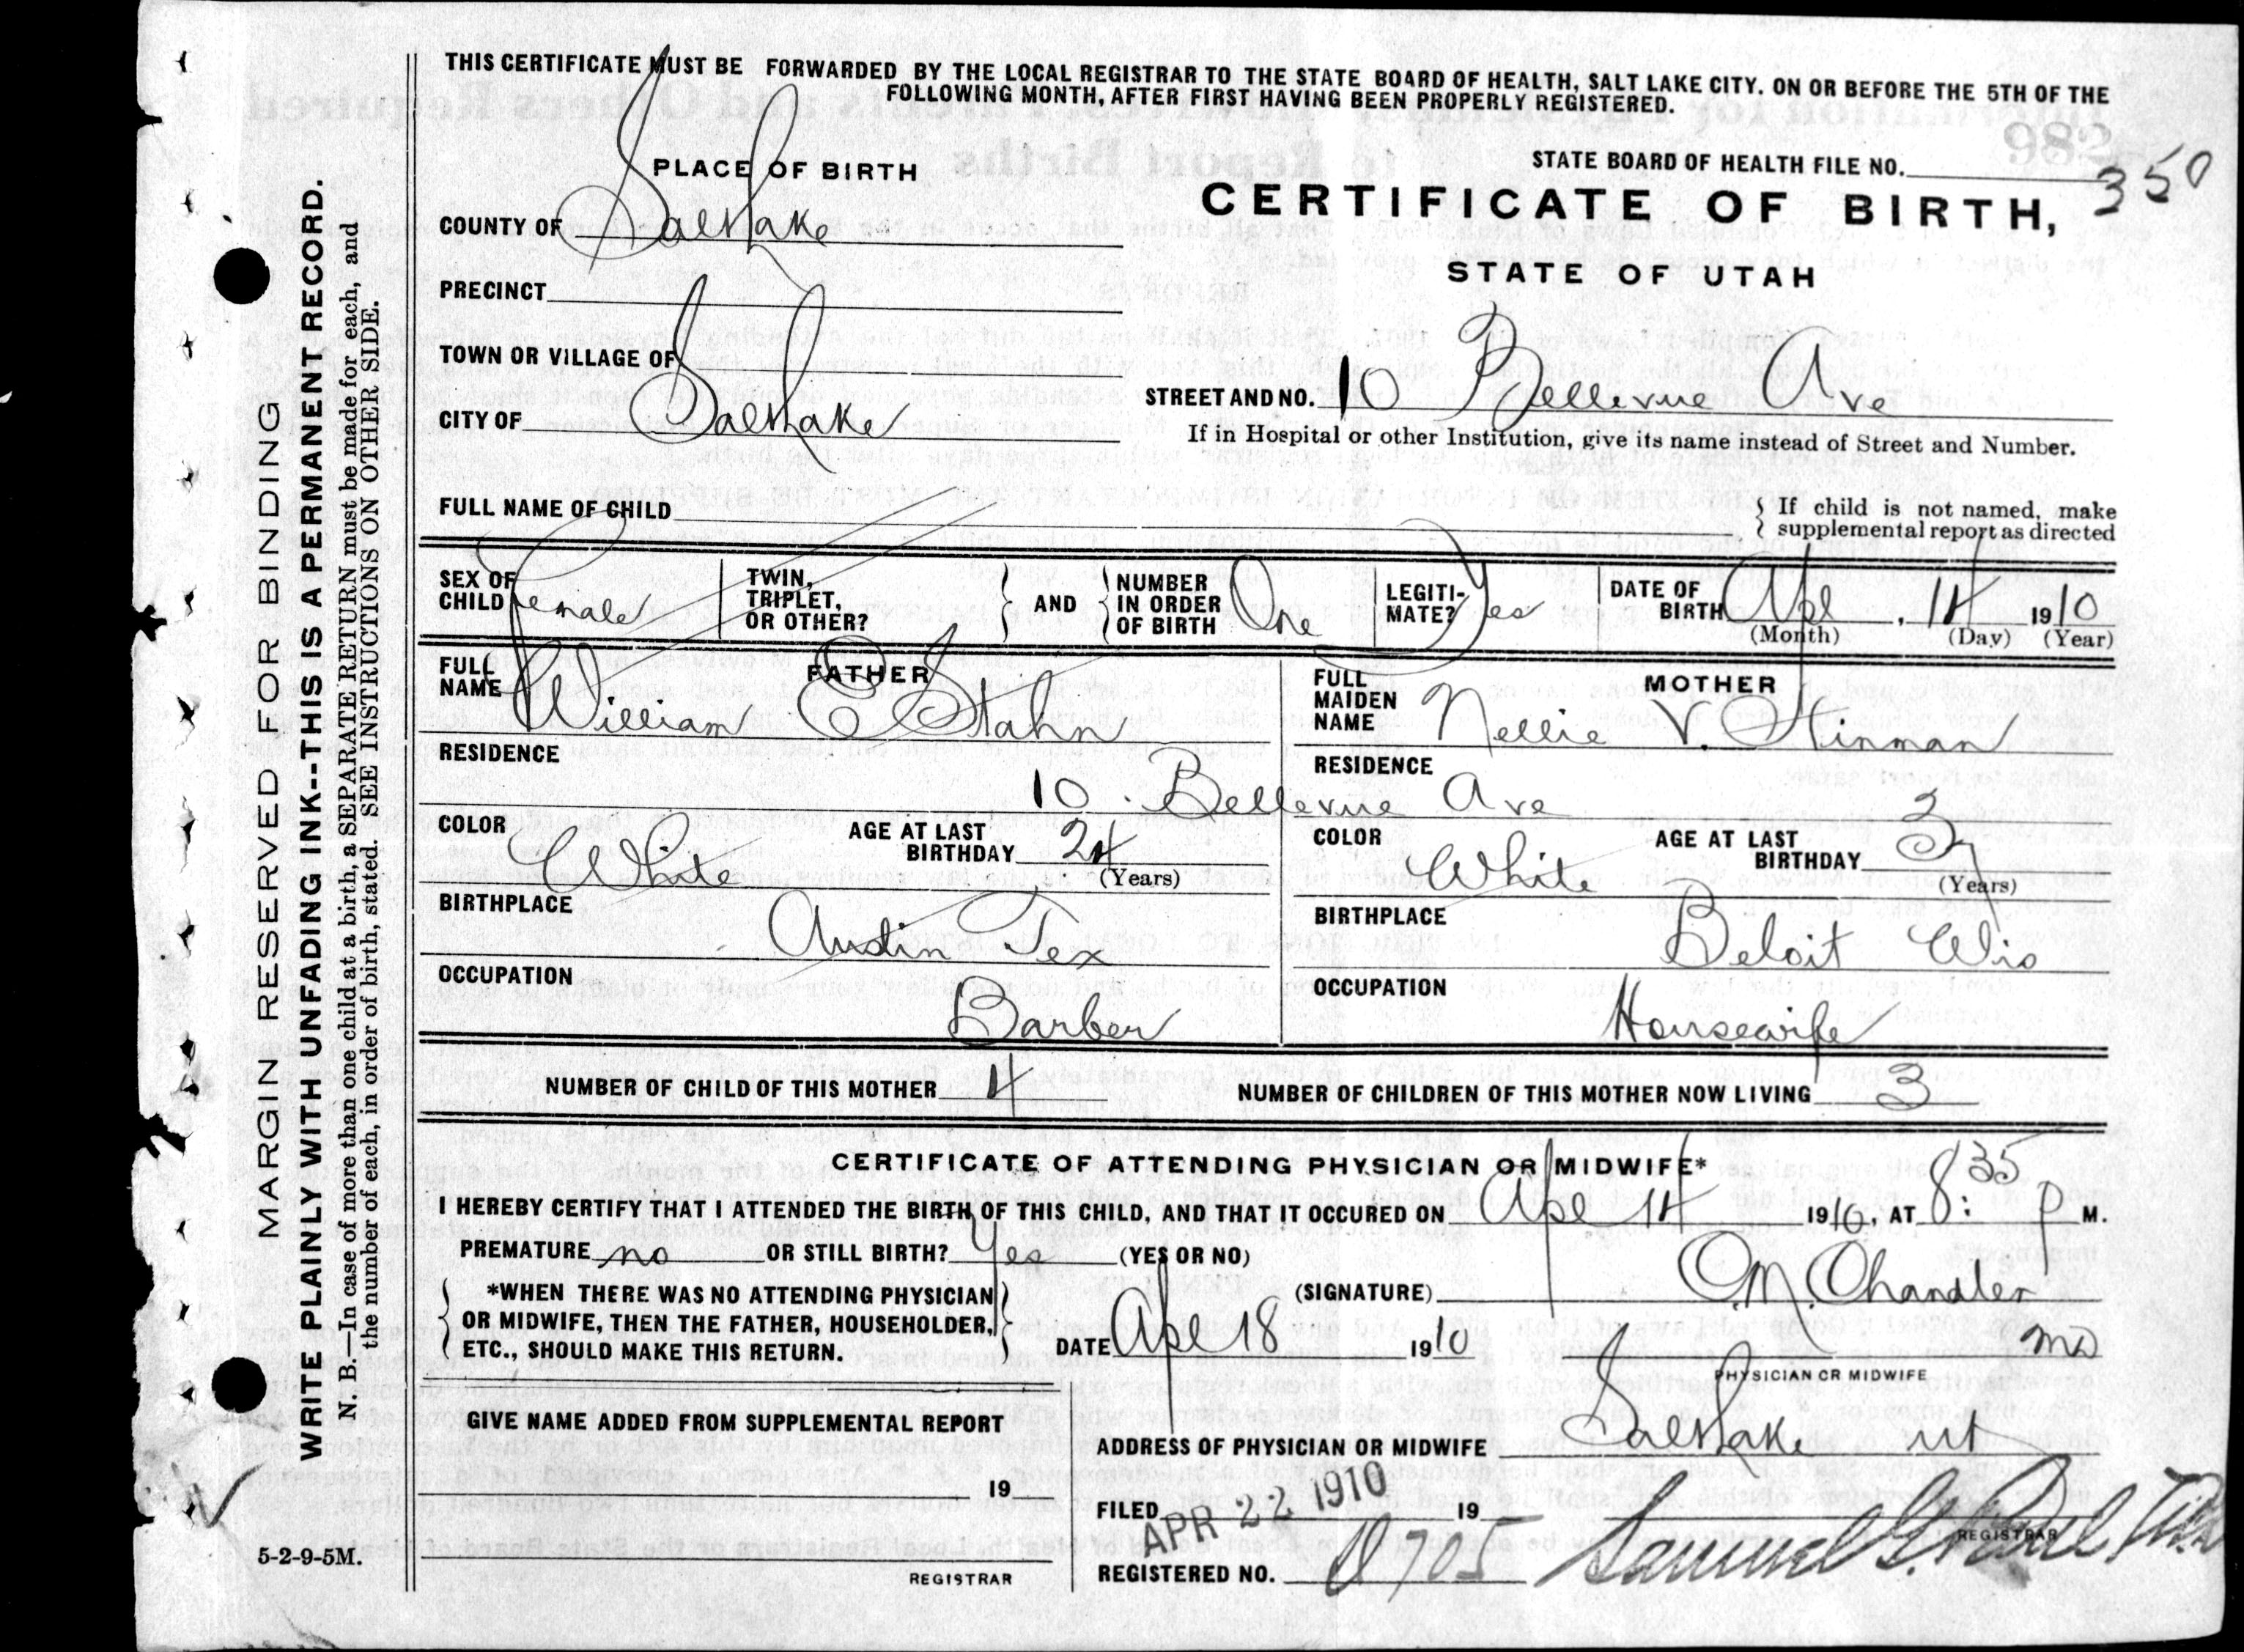 THIS CERTIFICATE MUST BE FORWARDED BY THE LOCAL REGISTRAR TO THE STATE BOARD OF HEALTH, SALT LAKE CITY. ON OR BEFORE THE 5TH OF THE
FOLLOWING MONTH, AFTER FIRST HAVING BEEN PROPERLY REGISTERED.
PLACE OF BIRTH
STATE BOARD OF HEALTH FILE NO. 350
CERTIFICATE OF BIRTH,
STATE OF UTAH
COUNTY OF Salt Lake
PRECINCT
TOWN OR VILLAGE OF
CITY OF Salt Lake
STREET AND NO. 10 Bellevue Ave
If in Hospital or other Institution, give its name instead of Street and Number.
FULL NAME OF CHILD
If child is not named, make
supplemental report as directed
SEX OF CHILD Female
TWIN, TRIPLET, OR OTHER?
AND
NUMBER IN ORDER OF BIRTH One
LEGITI-MATE? Yes
DATE OF BIRTH Apl. 14 1910
(Month) (Day) (Year)
FATHER
FULL NAME William E Stahn
MOTHER
FULL MAIDEN NAME Nellie V. Hinman
RESIDENCE
RESIDENCE
10 Bellevue Ave
COLOR White
AGE AT LAST BIRTHDAY 24
(Years)
COLOR White
AGE AT LAST BIRTHDAY
(Years)
BIRTHPLACE Austin Tex
BIRTHPLACE Beloit Wis
OCCUPATION Barber
OCCUPATION Housewife
NUMBER OF CHILD OF THIS MOTHER 4
NUMBER OF CHILDREN OF THIS MOTHER NOW LIVING 3
CERTIFICATE OF ATTENDING PHYSICIAN OR MIDWIFE*
I HEREBY CERTIFY THAT I ATTENDED THE BIRTH OF THIS CHILD, AND THAT IT OCCURED ON Apl 14 1910, AT 8:35 P M.
PREMATURE no OR STILL BIRTH? Yes (YES OR NO)
*WHEN THERE WAS NO ATTENDING PHYSICIAN
OR MIDWIFE, THEN THE FATHER, HOUSEHOLDER,
ETC., SHOULD MAKE THIS RETURN.
(SIGNATURE) O.M. Chandler
MD
DATE Apl 18 1910
PHYSICIAN OR MIDWIFE
GIVE NAME ADDED FROM SUPPLEMENTAL REPORT
19
REGISTRAR
ADDRESS OF PHYSICIAN OR MIDWIFE Salt Lake Ut
FILED APR 22 1910 19
REGISTRAR
REGISTERED NO.
Samuel G. Paul
MARGIN RESERVED FOR BINDING
WRITE PLAINLY WITH UNFADING INK--THIS IS A PERMANENT RECORD.
N. B.—In case of more than one child at a birth, a SEPARATE RETURN must be made for each, and
the number of each, in order of birth, stated. SEE INSTRUCTIONS ON OTHER SIDE.
5-2-9-5M.